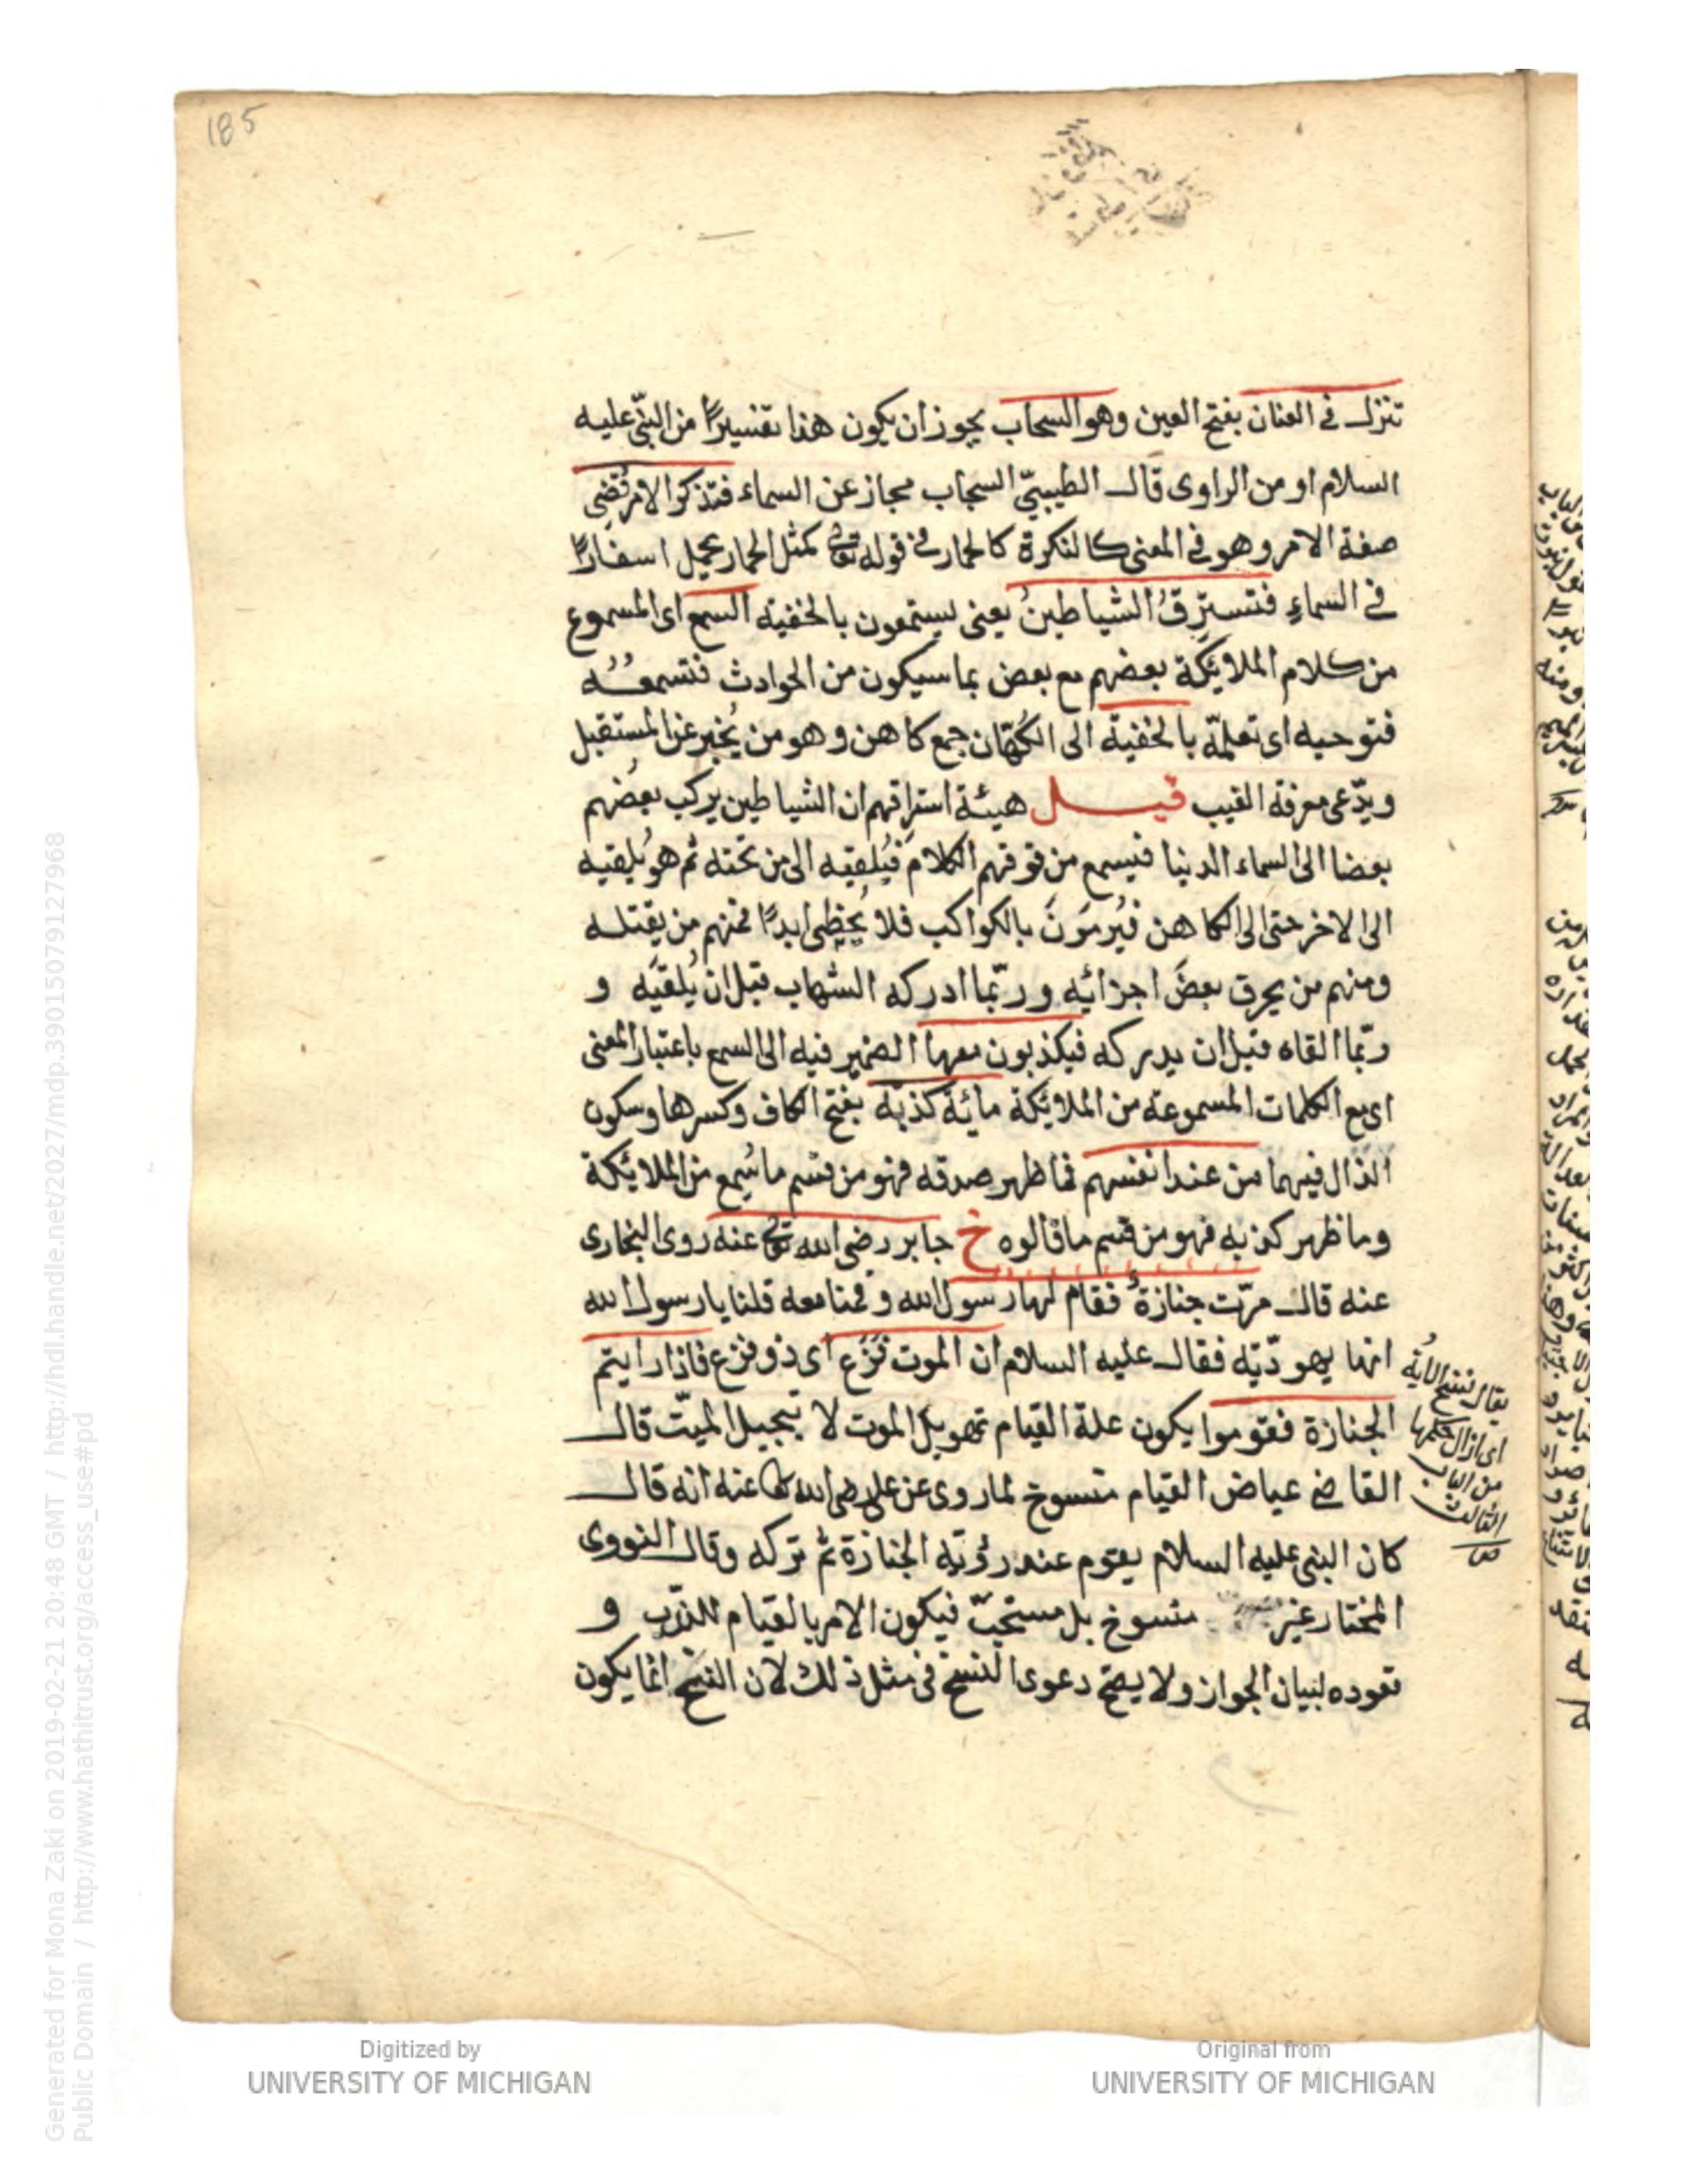 185
تنزل في العنان بفتح العين وهو السحاب يجوز ان يكون هذا تفسيرًا من النبيّ عليه
السلام او من الراوى قال الطيبيّ السحاب مجاز عن السماء فتذكر الامر قُضِى
صفة الامر وهو في المعنى كالنكرة كالحمار في قوله تعالى كمثل الحمار يحمل اسفارًا
في السماءِ فتسترقُ الشياطينُ يعنى يستمعون بالخفية السمع اى المسموع
من كلام الملائكة بعضهم مع بعض بما سيكون من الحوادث فتسمعُه
فتوحيه اى تعلمّه بالخفية الى الكُهّان جمع كاهن وهو من يُخبر عن المستقبل
ويدّعى معرفة الغيب قيل هيئة استراقهم ان الشياطين يركب بعضُهم
بعضا الى السماء الدنيا فيسمع من فوقهم الكلامَ فيُلقيه الى من تحته ثم هو يُلقيه
الى الاخر حتى الى الكاهن فيُرمَونَ بالكواكب فلا يُخطِى ابدًا فمنهم من يقتله
ومنهم من يحرق بعضَ اجزائه وربّما ادركه الشهاب قبل ان يُلقيَه و
ربّما القاه قبل ان يدركه فيكذبون معها الضمير فيه الى السمع باعتبار المعنى
اى مع الكلمات المسموعة من الملائكة مائة كذبة بفتح الكاف وكسرها وسكون
الذال فيهما من عند انفسهم فما ظهر صدقه فهو من قسم ما سُمِع من الملائكة
وما ظهر كذبه فهو من قسم ما قالوه خ جابر رضى الله تعالى عنه روى البخارى
عنه قال مرّت جنازةٌ فقام لها رسول الله وقمنا معه قلنا يا رسول الله
انها يهوديّة فقال عليه السلام ان الموت فَزَع اى ذو فزع فاذا رايتم
الجنازة فقوموا يكون علة القيام تهويل الموت لا تبجيل الميّت قال
القاضي عياض القيام منسوخ لما روى عن على رضى الله عنه انه قال
كان النبى عليه السلام يقوم عند رؤية الجنازة ثم تركه وقال النووى
المختار غير منسوخ بل مستحبّ فيكون الامر بالقيام للندب و
قعوده لبيان الجواز ولا يصح دعوى النسخ في مثل ذلك لان النسخ انما يكون
يقال نسخ الآية
اى ازال حكمها
من الباب
الثالث
Digitized by
UNIVERSITY OF MICHIGAN
Original from
UNIVERSITY OF MICHIGAN
Generated for Mona Zaki on 2019-02-21 20:48 GMT / http://hdl.handle.net/2027/mdp.39015079127968
Public Domain / http://www.hathitrust.org/access_use#pd